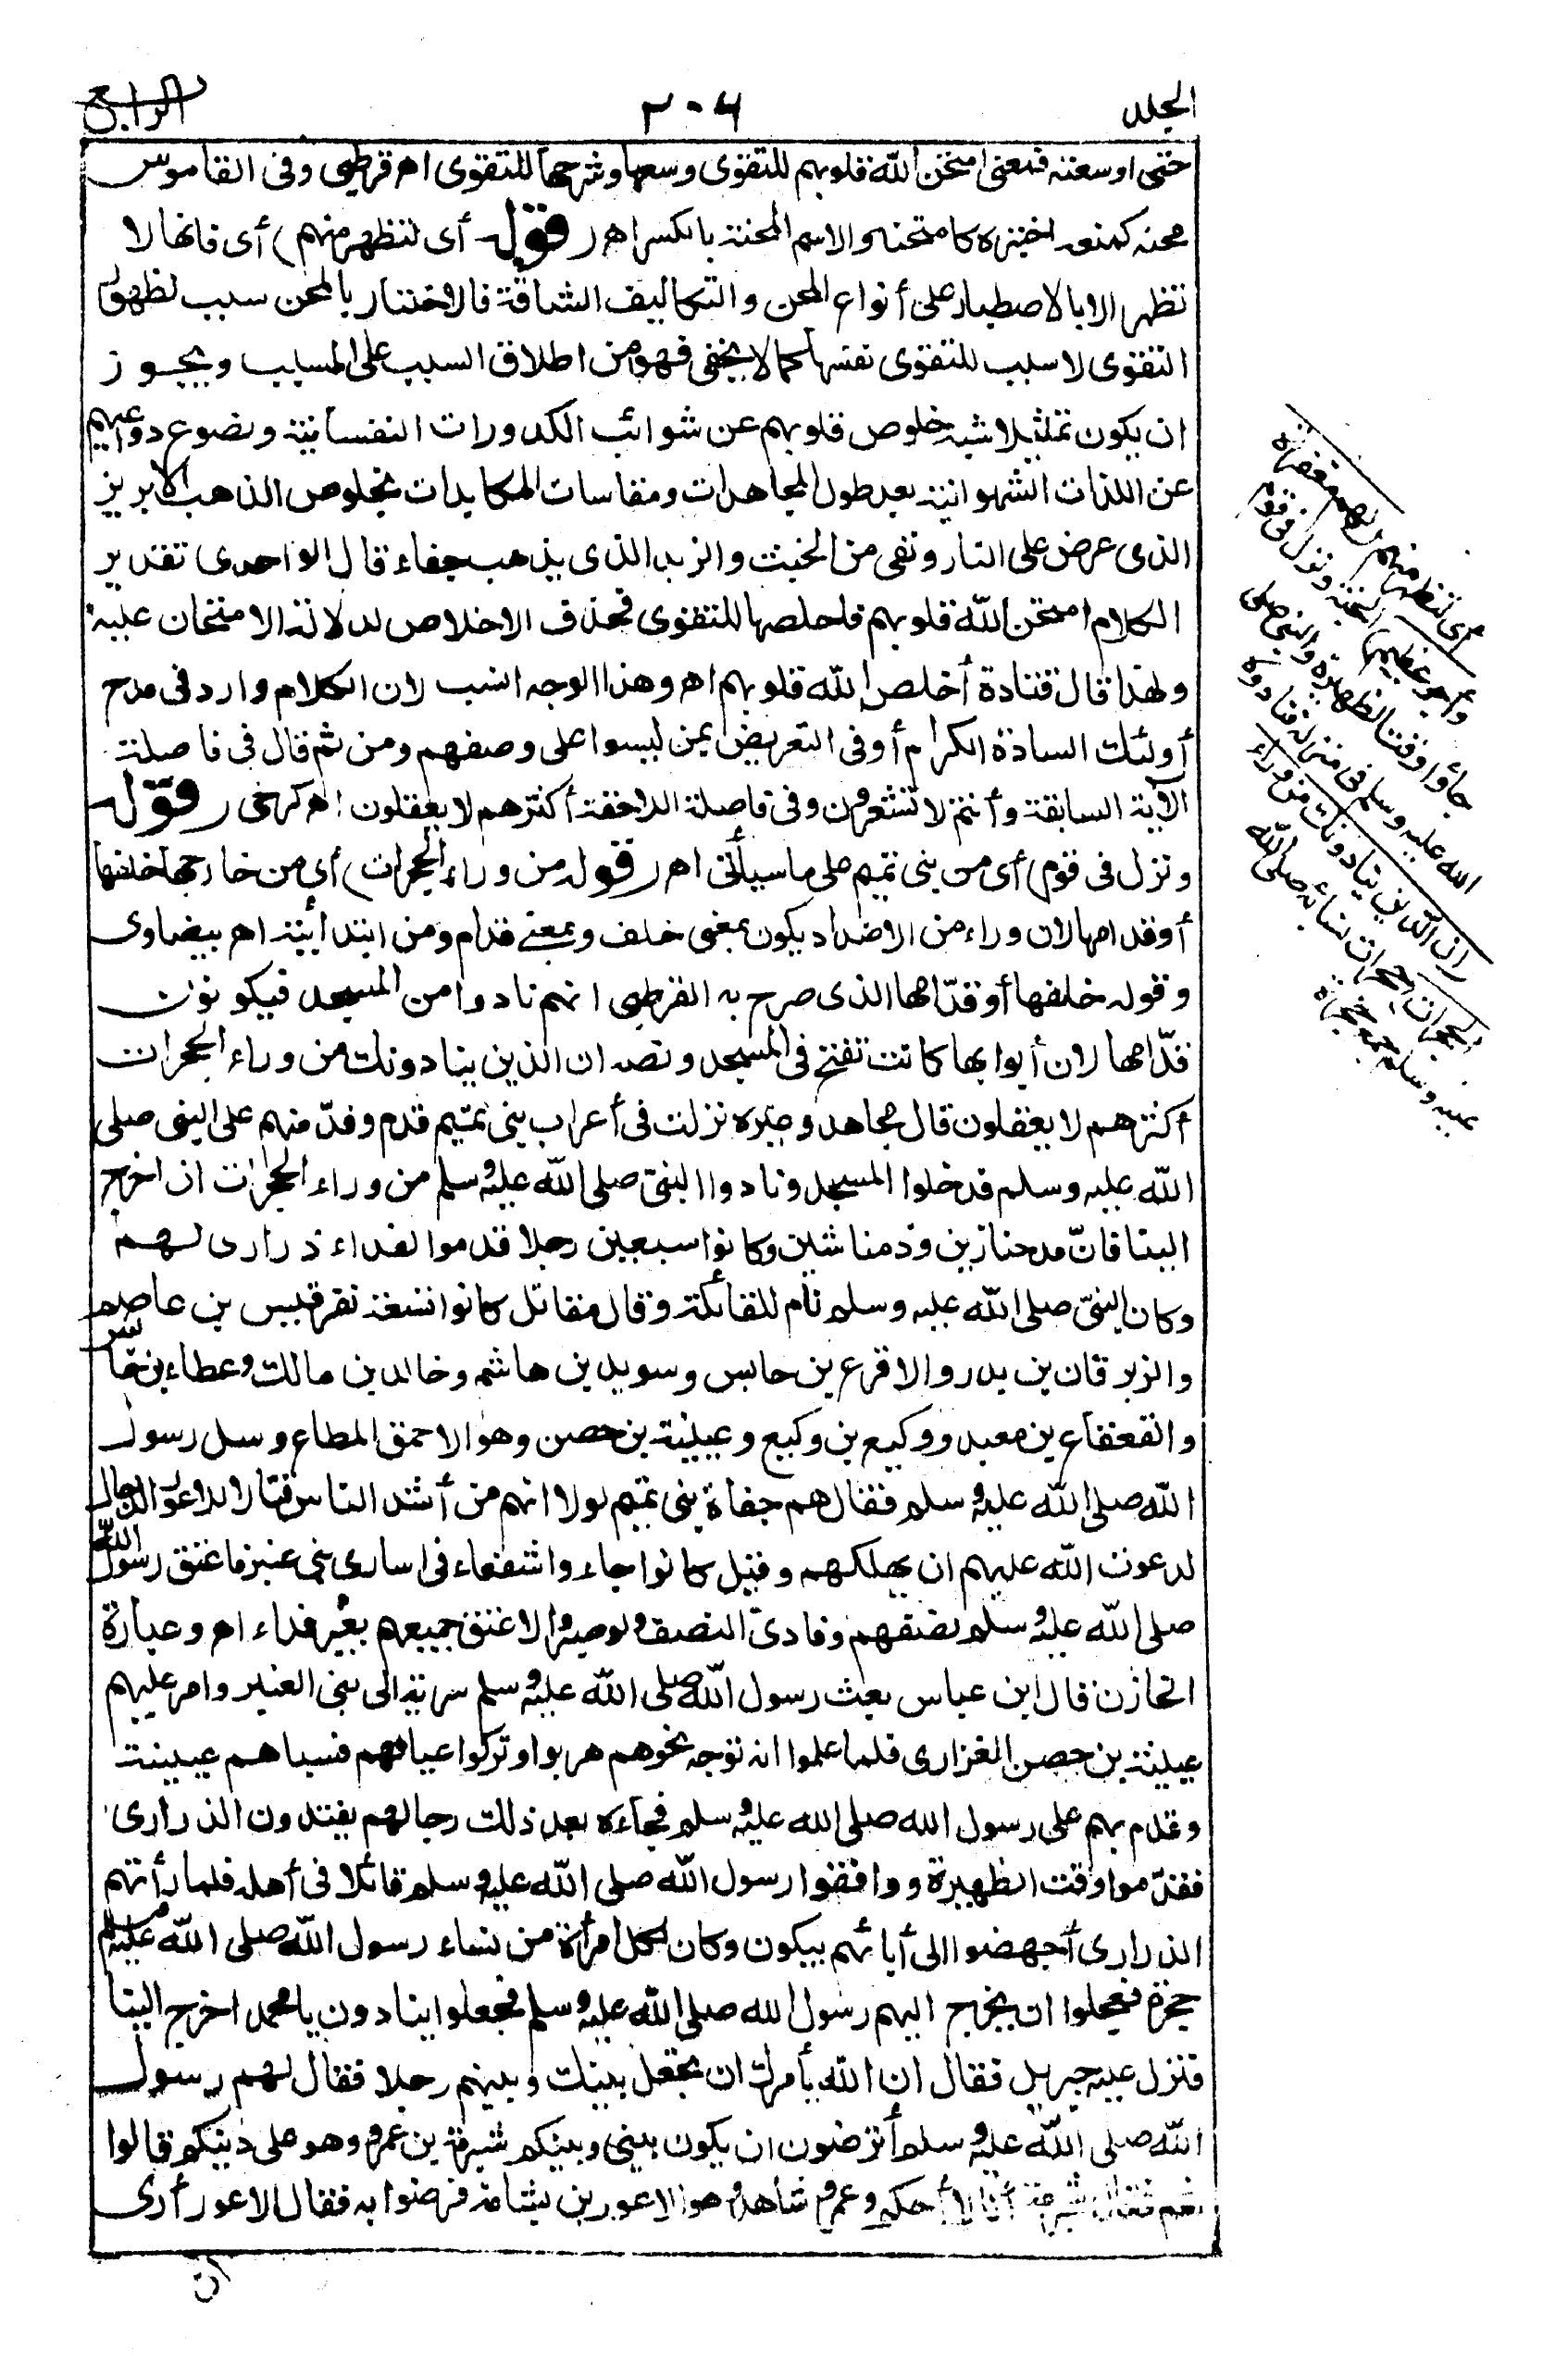 الجلد
٢٠٦
الرابع
حتى اوسعته فمعنى امتحن الله قلوبهم للتقوى وسعها وشرحها للتقوى اهـ قرطبى وفى القاموس
محنه كمنعه اختبره كامتحنه والاسم المحنة بالكسر اهـ (قوله أى لتظهر منهم) أى فانها لا
تظهر الا بالاصطبار على أنواع المحن والتكاليف الشاقة فالاختبار بالمحن سبب لظهور
التقوى لا سبب للتقوى نفسها كما لا يخفى فهو من اطلاق السبب على المسبب ويجوز
ان يكون تمثيلا شبه خلوص قلوبهم عن شوائب الكدورات النفسانية ونصوع دواعيهم
عن اللذات الشهوانية بعد طول المجاهدات ومقاسات المكابدات بخلوص الذهب الابريز
الذى عرض على النار ونفى من الخبث والزبد الذى يذهب جفاء قال الواحدى تقدير
الكلام امتحن الله قلوبهم فاخلصها للتقوى فحذف الاخلاص لدلالة الامتحان عليه
ولهذا قال قتادة أخلص الله قلوبهم اهـ وهذا الوجه انسب لان الكلام وارد فى مدح
أولئك السادة الكرام أو فى التعريض بمن ليسوا على وصفهم ومن ثم قال فى فاصلة
الآية السابقة وأنتم لا تشعرون وفى فاصلة اللاحقة أكثرهم لا يعقلون اهـ كرخى (قوله
ونزل فى قوم) أى من بنى تميم على ما سيأتى اهـ (قوله من وراء الحجرات) أى من خارجها خلفها
أو قدامها لان وراء من الاضداد يكون بمعنى خلف وبمعنى قدام ومن ابتدائية اهـ بيضاوى
وقوله خلفها أو قدّامها الذى صرح به القرطبى انهم نادوا من المسجد فيكونون
قدّامها لان أبوابها كانت تفتح فى المسجد ونصه ان الذين ينادونك من وراء الحجرات
أكثرهم لا يعقلون قال مجاهد وغيره نزلت فى أعراب بنى تميم قدم وفد منهم على النبى صلى
الله عليه وسلم فدخلوا المسجد ونادوا النبىّ صلى الله عليه وسلم من وراء الحجرات ان اخرج
الينا فانّ مدحنا زين وذمنا شين وكانوا سبعين رجلا قدموا لفداء ذرارى لهم
وكان النبىّ صلى الله عليه وسلم نام للقائلة وقال مقاتل كانوا تسعة نفر قيس بن عاصم
والزبرقان بن بدر والاقرع بن حابس وسويد بن هاشم وخالد بن مالك وعطاء بن حابس
والقعقاع بن معبد ووكيع بن وكيع وعيينة بن حصن وهو الاحمق المطاع وسئل رسول
الله صلى الله عليه وسلم فقال هم جفاة بنى تميم لولا انهم من أشد الناس قتالا للاعور الدجال
لدعوت الله عليهم ان يهلكهم وقيل كانوا جاءوا شفعاء فى اسارى بنى عنبر فاعتق رسول الله
صلى الله عليه وسلم نصفهم وفادى النصف ولو صبروا لاعتق جميعهم بغير فداء اهـ وعبارة
الخازن قال ابن عباس بعث رسول الله صلى الله عليه وسلم سرية الى بنى العنبر وامر عليهم
عيينة بن حصن الفزارى فلما علموا انه توجه نحوهم هربوا وتركوا عيالهم فسباهم عيينة
وقدم بهم على رسول الله صلى الله عليه وسلم فجاءه بعد ذلك رجالهم يفتدون الذرارى
فقدّموا وقت الظهيرة ووافقوا رسول الله صلى الله عليه وسلم قائلا فى أهله فلما رأتهم
الذرارى أجهضوا الى أبائهم يبكون وكان لكل امرأة من نساء رسول الله صلى الله عليه وسلم
حجرة فعجلوا ان يخرج اليهم رسول الله صلى الله عليه وسلم فجعلوا ينادون يا محمد اخرج الينا
فنزل عليه جبريل فقال ان الله يأمرك ان تجعل بينك وبينهم رجلا فقال لهم رسول
الله صلى الله عليه وسلم أترضون ان يكون بينى وبينكم شبرمة بن عمرو وهو على دينكم قالوا
نعم فقال شبرمة أنا لا أحكم وعمى شاهد وهو الاعور بن بشامة فرضوا به فقال الاعور أرى
ان
أى لتظهر منهم (لهم مغفرة
وأجر عظيم) الجنة ونزل فى قوم
جاؤا وقت الظهيرة والنبى صلى
الله عليه وسلم فى منزله فنادوه
(ان الذين ينادونك من وراء
الحجرات) حجرات نسائه صلى الله
عليه وسلم جمع حجرة